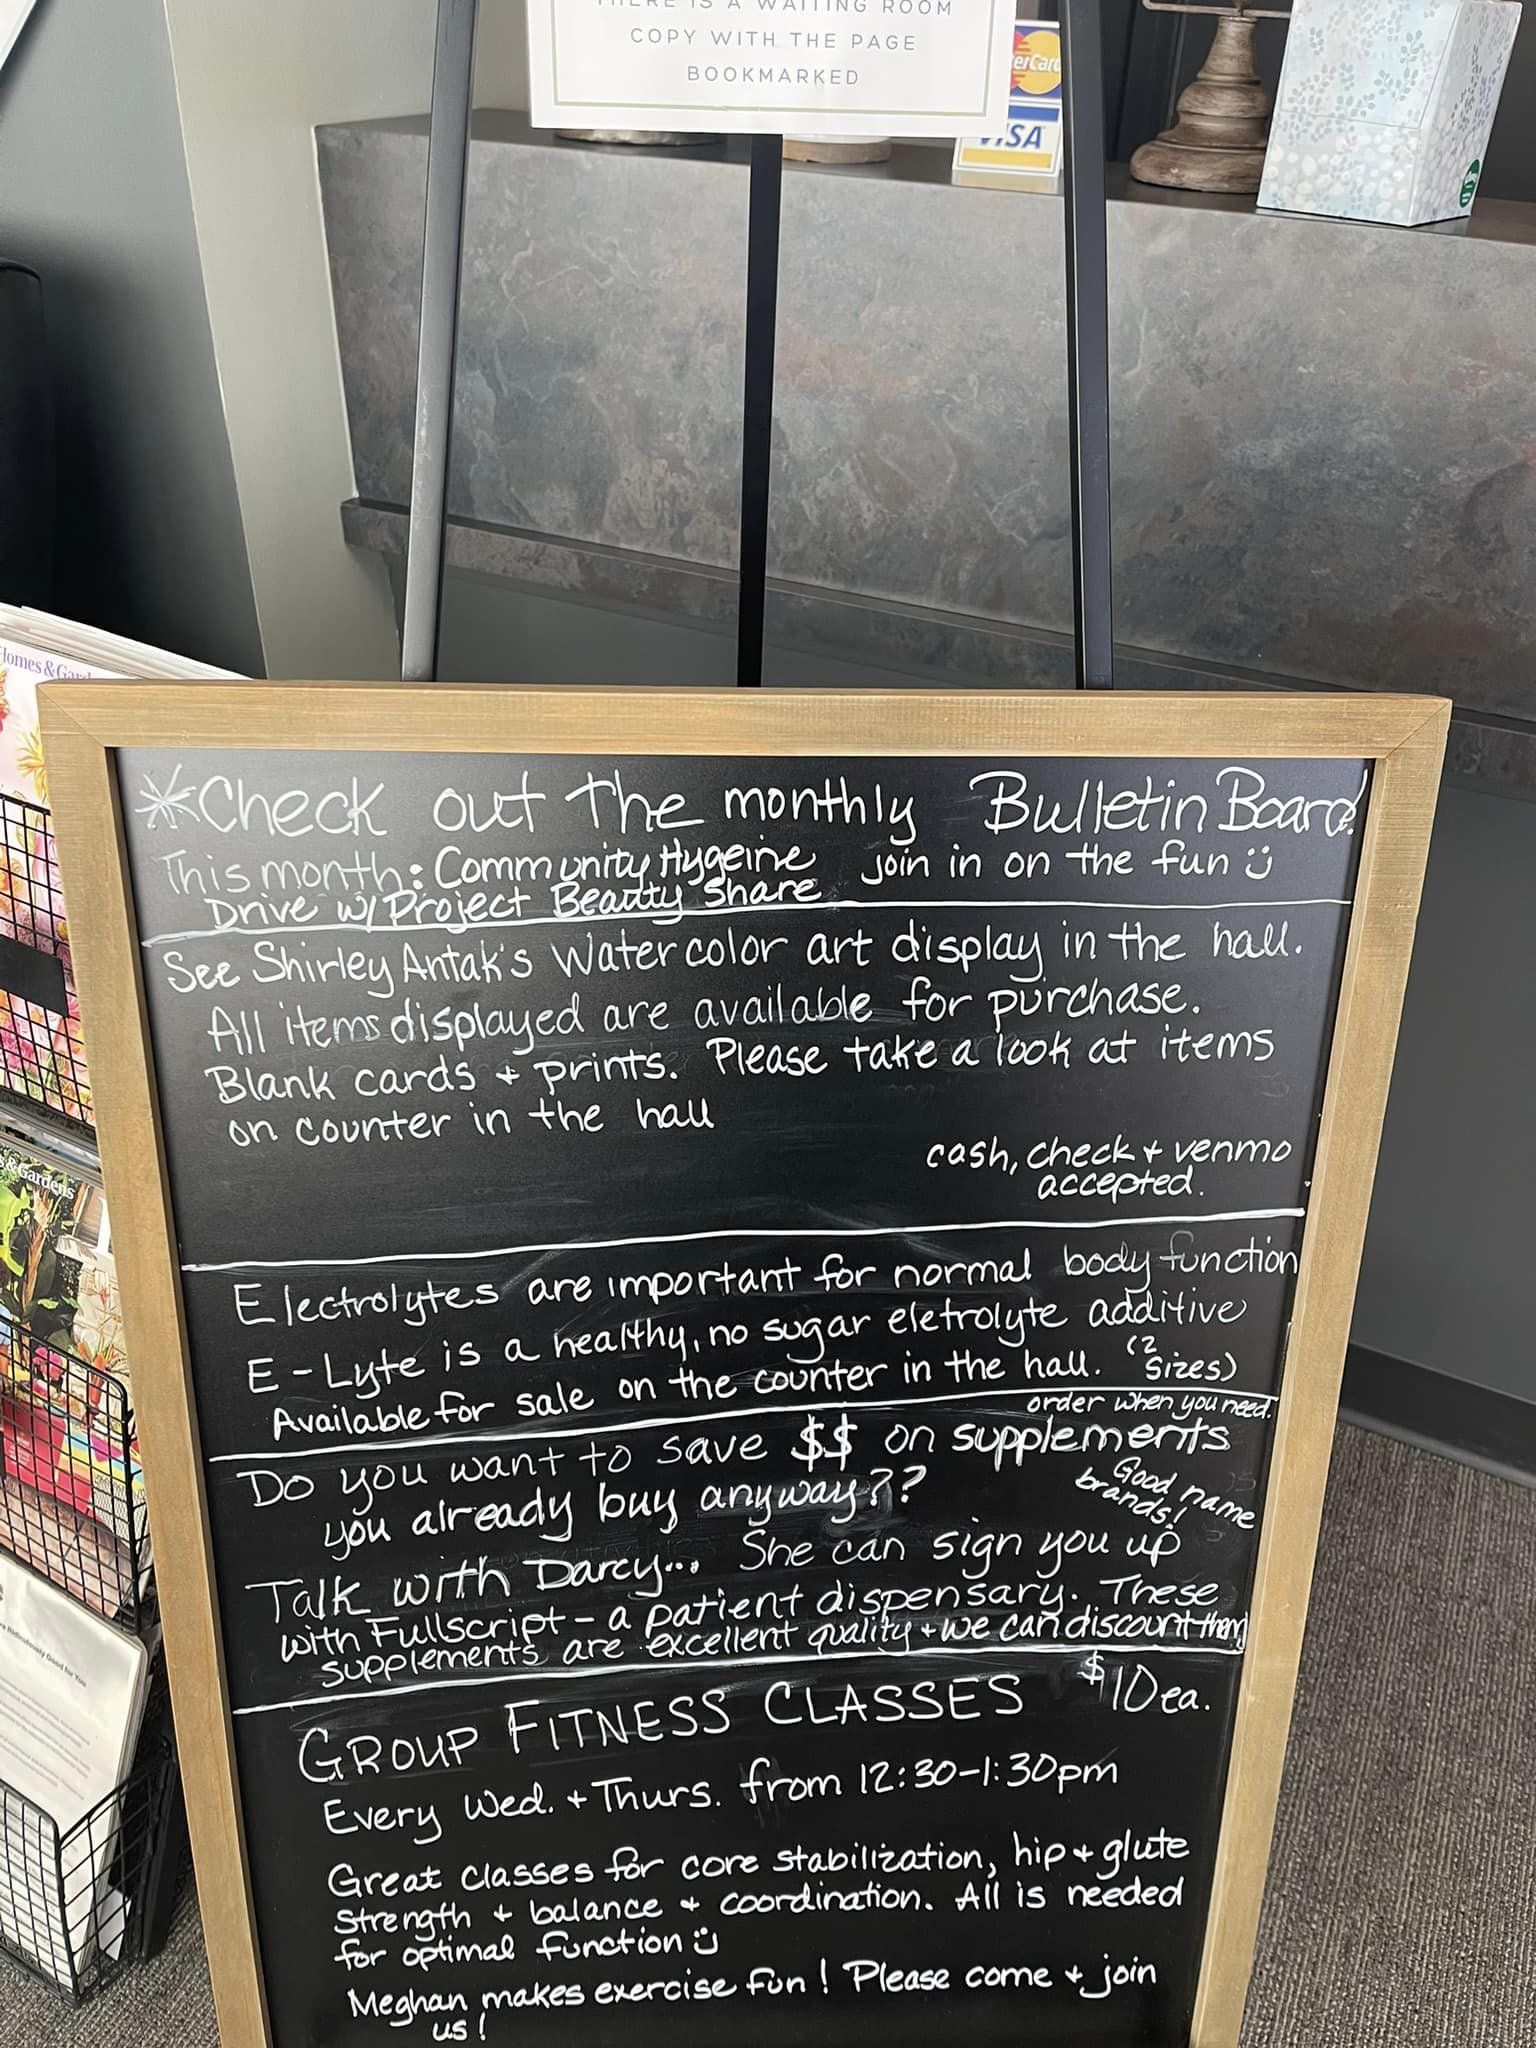 THERE IS A WAITING ROOM
COPY WITH THE PAGE
BOOKMARKED
erCard
VISA
Homes & Gard
s & Gardens
Ridiculously Good for You
*Check out the monthly Bulletin Board!
This month: Community Hygeine join in on the fun
Drive w/ Project Beauty Share
See Shirley Antak's watercolor art display in the hall.
All items displayed are available for purchase.
Blank cards + prints. Please take a look at items
on counter in the hall
cash, check + venmo
accepted.
Electrolytes are important for normal body function
E-Lyte is a healthy, no sugar eletrolyte additive
Available for sale on the counter in the hall. (2 sizes)
order when you need.
Do you want to save $$ on supplements
you already buy anyway??
Good name
brands!
Talk with Darcy... She can sign you up
with Fullscript - a patient dispensary. These
supplements are excellent quality + we can discount them
GROUP FITNESS CLASSES $10 ea.
Every Wed. + Thurs. from 12:30-1:30pm
Great classes for core stabilization, hip + glute
strength + balance + coordination. All is needed
for optimal function
Meghan makes exercise fun! Please come + join
us!